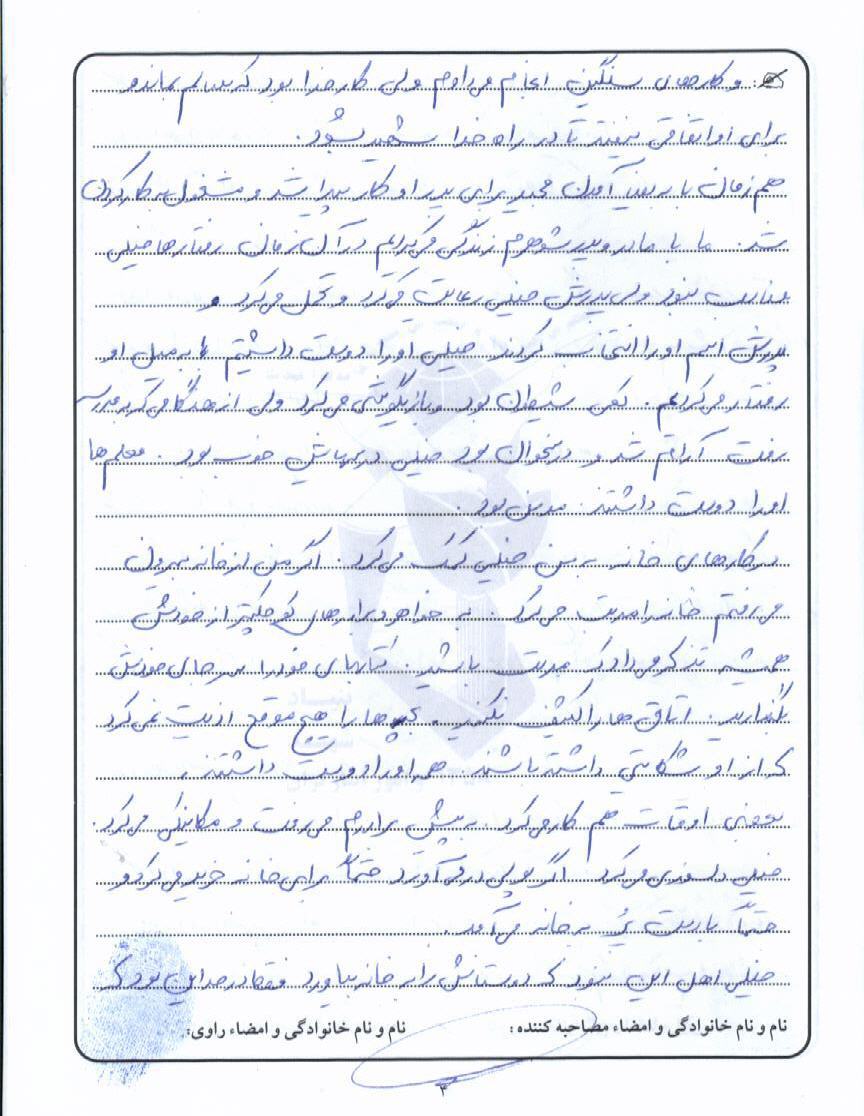 و کارهای سنگین انجام می‌دادم ولی کار خدا بود که سالم بماند و
برای او اتفاقی نیفتد تا در راه خدا شهید بشود.
هم زمان با به دنیا آمدن مجید برای پدر او کار پیدا شد و مشغول به کار کردن
شد. ما با مادر و پدر شوهرم زندگی می‌کردیم در آن زمان رفتارها خیلی
مناسب نبود ولی پدرش خیلی رعایت می‌کرد و تحمل می‌کرد.
پدرش اسم او را انتخاب کردند خیلی او را دوست داشتیم با به میل او
رفتار می‌کردیم. کمی شیطان بود و بازیگوشی می‌کرد ولی از هنگامی که به مدرسه
رفت آرام شد و درسخوان بود خیلی درسهایش خوب بود. معلم‌ها
او را دوست داشتند.
در کارهای خانه به من خیلی کمک می‌کرد. اگر من از خانه بیرون
می‌رفتم خانه را مرتب می‌کرد. به خواهر و برادرهای کوچکتر از خودش
همیشه تذکر می‌داد که مرتب باشید. کتابهای خود را سر جای خودش
بگذارید. اتاق‌ها را کثیف نکنید. بچه‌ها را هیچ موقع اذیت نمی‌کرد
که از او شکایتی داشته باشند. همه او را دوست داشتند.
بعضی اوقات هم کار می‌کرد. به پیش برادرم می‌رفت و مکانیکی می‌کرد.
خیلی دلسوزی می‌کرد اگر پولی در می‌آورد حتماً برای خانه خرید می‌کرد و
حتماً با دست پُر به خانه می‌آمد.
خیلی اهل این نبود که دوستانش را به خانه بیاورد فقط در حد این بود که
نام و نام خانوادگی و امضاء مصاحبه کننده:
نام و نام خانوادگی و امضاء راوی:
۳